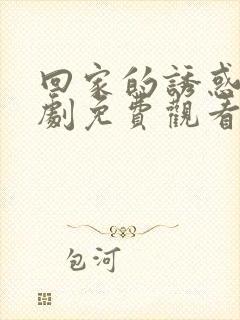 回家的誘惑
劇免費觀看
包河